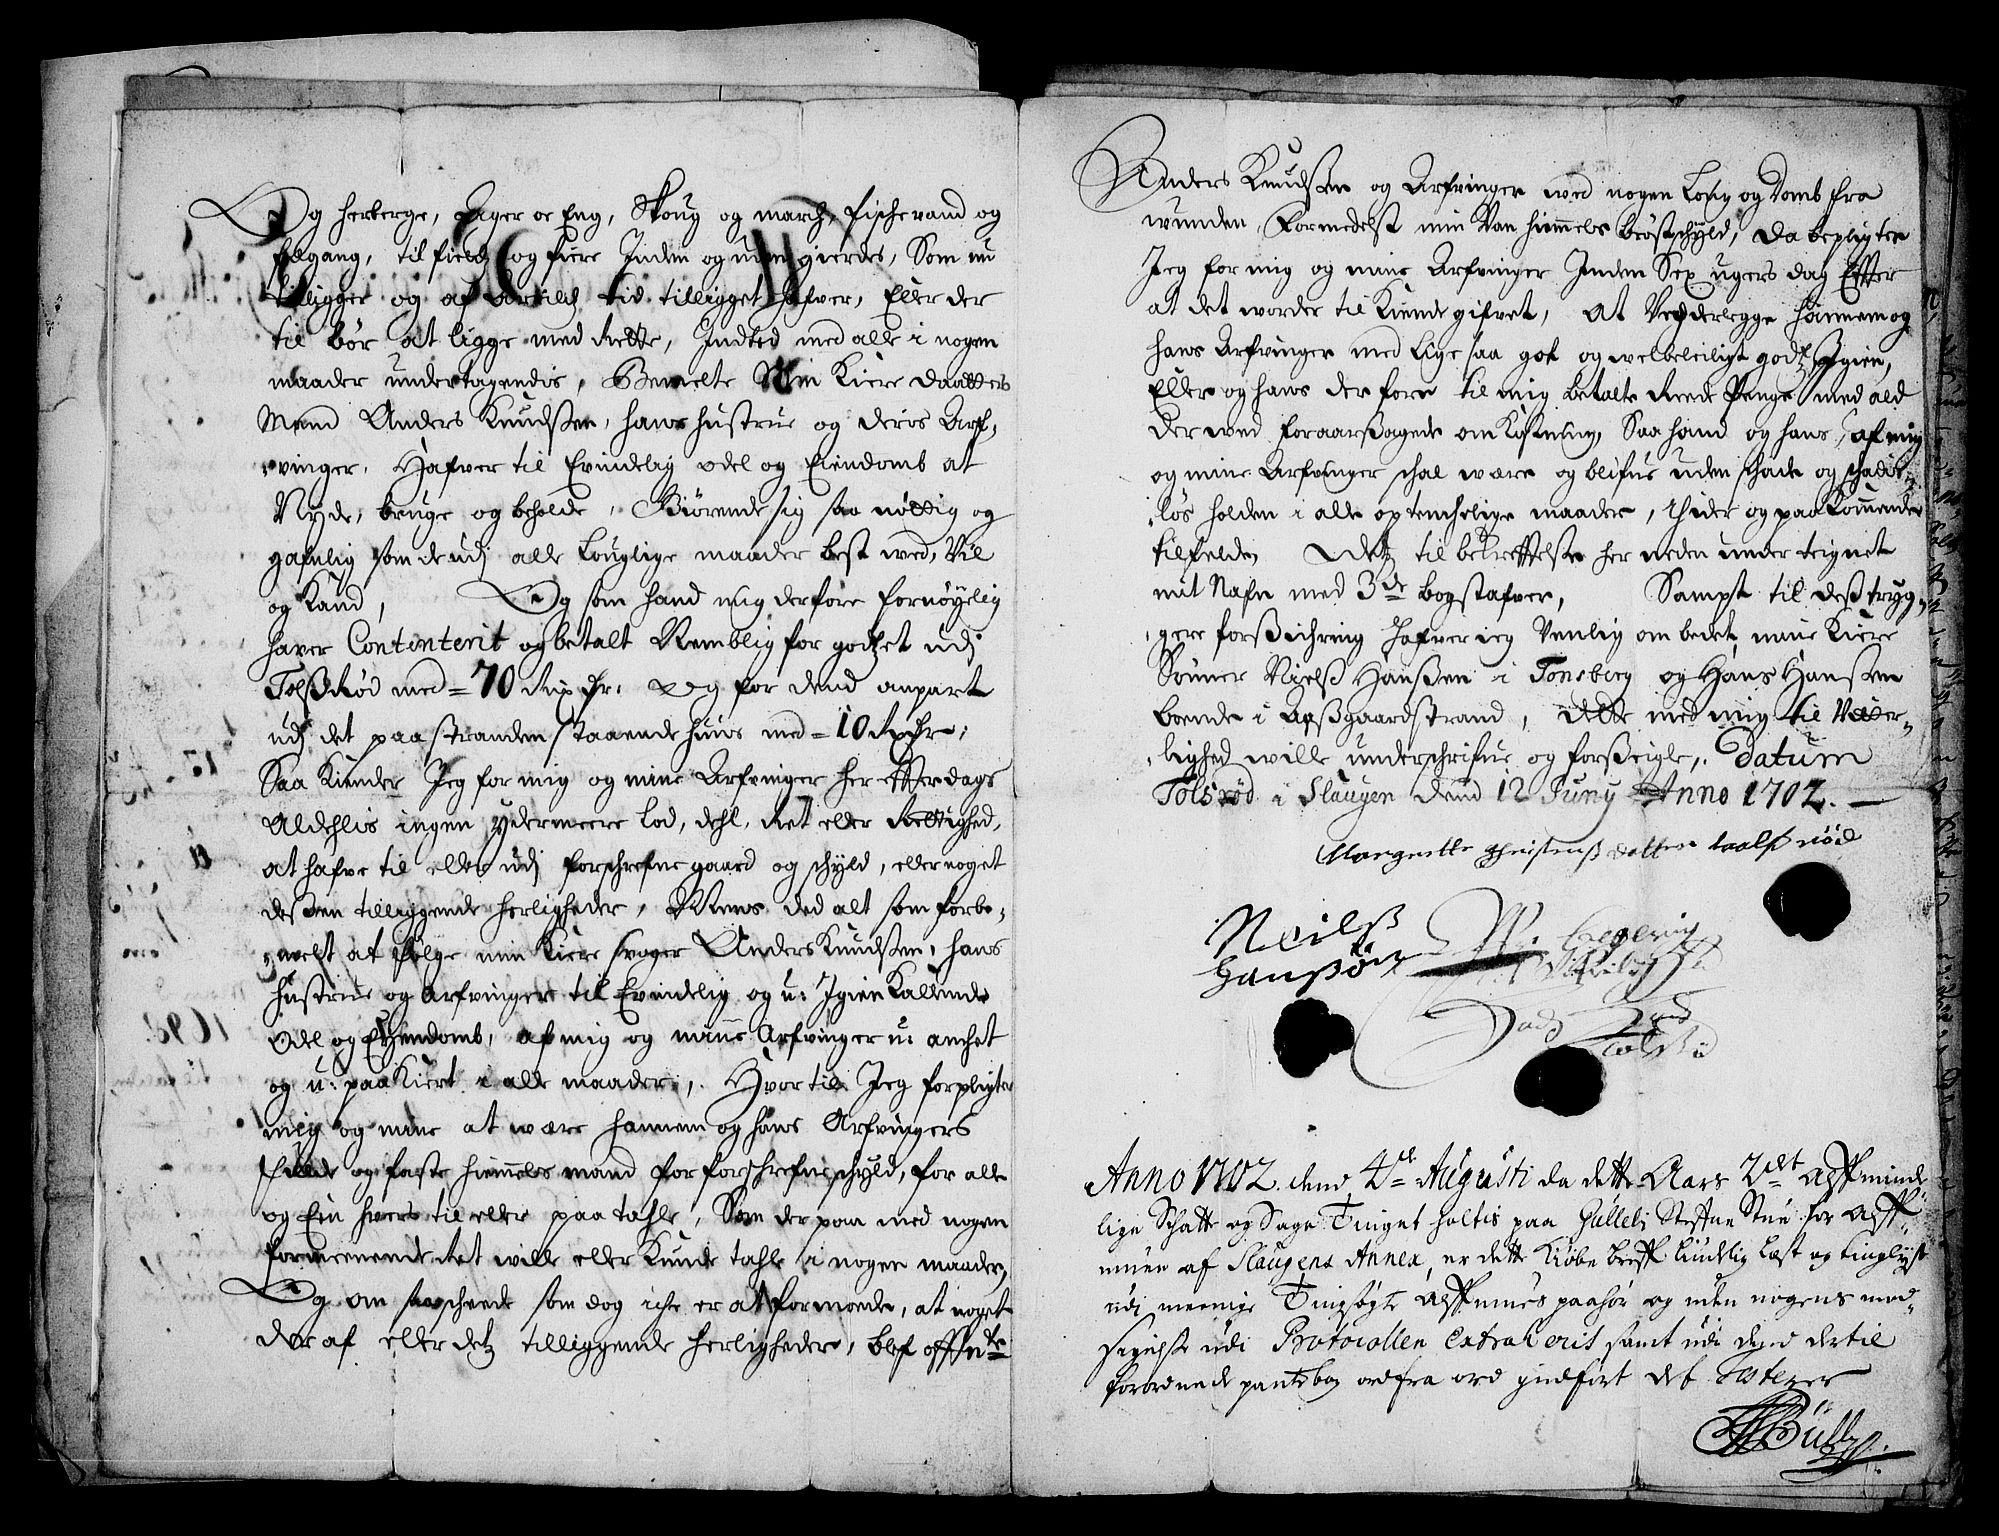 Og herberge, Ager oc Eng, Skoug og march, fische vand og
fægang, til field og fiere Inden og uden gierdes, Som nu
tilligger og af arrilds tid tilligget hafver, Eller der
til bør at ligge med Rette, Indted med alle i nogen
maader undertagendis, Bemelte Min Kiere daatters
Mand Anders Knudsen, hans hustrue og deris Arf,,
,,vinger, Hafver til Evindelig odel og Eiendomb at
Nyde, bruge og beholde, Giørende sig saa nøttig og
gafnlig som de udj alle Louglige maader best ved, Vil
og Kand, Og som hand mig derfore fornøyelig
haver Contenterit og betalt Nemblig for godtzet udj
Tolsrød med = 70 Rixdr: Og for dend anpart
udj det paa stranden staaende huus med = 10 Rixdr:
Saa Kiender Jeg for mig og mine Arfvinger her effter dags
Aldehlis ingen ydermeere Lod, dehl, Ret eller Rettighed,
at hafve til eller udj forschrefne gaard og schyld, eller noget
dessen tilliggende herligheder, Mens ded alt som forbe,,
,,melt at følge min Kiere svoger Anders Knudsen, hans
hustrue og Arfvinger til Evindelig og u: Igien Kallende
Odel og Eyendomb, af mig og mine Arfvinger u: anchet
og u: paa Kiert i alle maader,. Hvor til Jeg forpligter
mig og mine at være hannem og hans Arfvingers
fulde og faste hiemmels mand for forschrefne schyld, for alle
og Ein hvers til eller paa tahle, Som der paa med nogen
formeenende Ret wille eller Kunde tahle i nogen maader,
Og om saa scheede som dog iche er at formoende, at noget
der af eller detz tilliggende herligheder, blef offtnte
Anders Knudsen og Arfvinger med nogen Loug og Domb fra
wunden, formedelst min Van hiemmels brøstschyld, da bepligter
Jeg for mig og mine Arfvinger Inden Sex ugers dag Effter
at det vorder til Kiende gifvet, at Vederlegge hannem og
hans Arfvinger med Lige saa got og velbeleiligt godtz Igien,
Eller og hans der fore til mig betalte Reede Penge med ald
der ved foraarsagede omKostning, Saa hand og hans, af mig
og mine Arfvinger schal være og blifve uden schade og schades,,
,,løs holden i alle optenchelige maader, ihider og paa Kommende
tilfelde, Detz til bekreftelse her neden under teignet
mit Nafn med 3de bogstafver, Sampt til dess tryg,,
,,gere forsichring hafver ieg Venlig om bedet mine Kiere
Sønner Niels Hansen i Tonsberg og Hans Hansen
boende i Aasgaardstrand, dette med mig til Vitter,,
,,lighed wille underschrifve og forseigle,. Datum
Tolsrød i Slaugen dend 12 Juny Anno 1702. —
Margrette Christensdatter Taalsrød
Neilss
Hansøn
Anno 1702. dend 4de Augusti da dette Aars 2det Allminde,,
lige Schatte og Sage Tinget holtis paa Gulleli Steffne Stue for All,,
muen af Slaugens Annex, er dette Kiøbe breff lydelig læst og tinglyst
udi meenige Tingsøgte Allmues paahør og uden nogens mod,,
sigelse udi Protocollen extraheris samt udi dend dertil
forordnede pantebog ord fra ord indført det Testerer